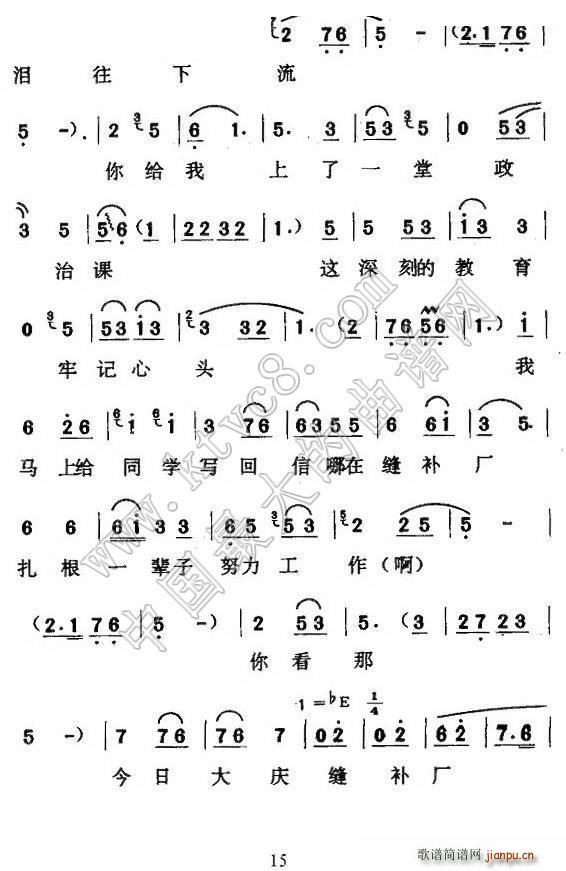 2 7 6 | 5 - | (2. 1 7 6 |
泪 往 下 流
5 -). | 2 3 5 | 6 1. | 5. 3 | 5 3 3 5 | 0 5 3 |
你 给 我 上 了 一 堂 政
3 5 | 5 6 (1 | 2 2 3 2 | 1.) 5 | 5 5 3 | i 3 3 |
治 课 这 深 刻 的 教 育
0 3 5 | 5 3 i 3 | 2 3 3 2 | 1. (2 | 7 6 5 6 | 1.) i |
牢 记 心 头 我
6 2 6 | 6 i 6 i | 3 7 6 | 6 3 5 5 | 6 6 i | 3 5. |
马 上 给 同 学 写 回 信 哪 在 缝 补 厂
6 6 | 6 i 3 3 | 6 5 5 3 | 3 5 2 | 2 5 | 5 - |
扎 根 一 辈 子 努 力 工 作 (啊)
(2. 1 7 6 | 5 -) | 2 5 3 | 5. (3 | 2 7 2 3 |
你 看 那
1 = ♭E 1/4
5 -) | 7 7 6 | 7 6 7 | 0 2 | 0 2 | 6 2 | 7. 6 |
今 日 大 庆 缝 补 厂
www.ktvc8.com
中国最大的曲谱网
15
歌谱简谱网
jianpu.cn